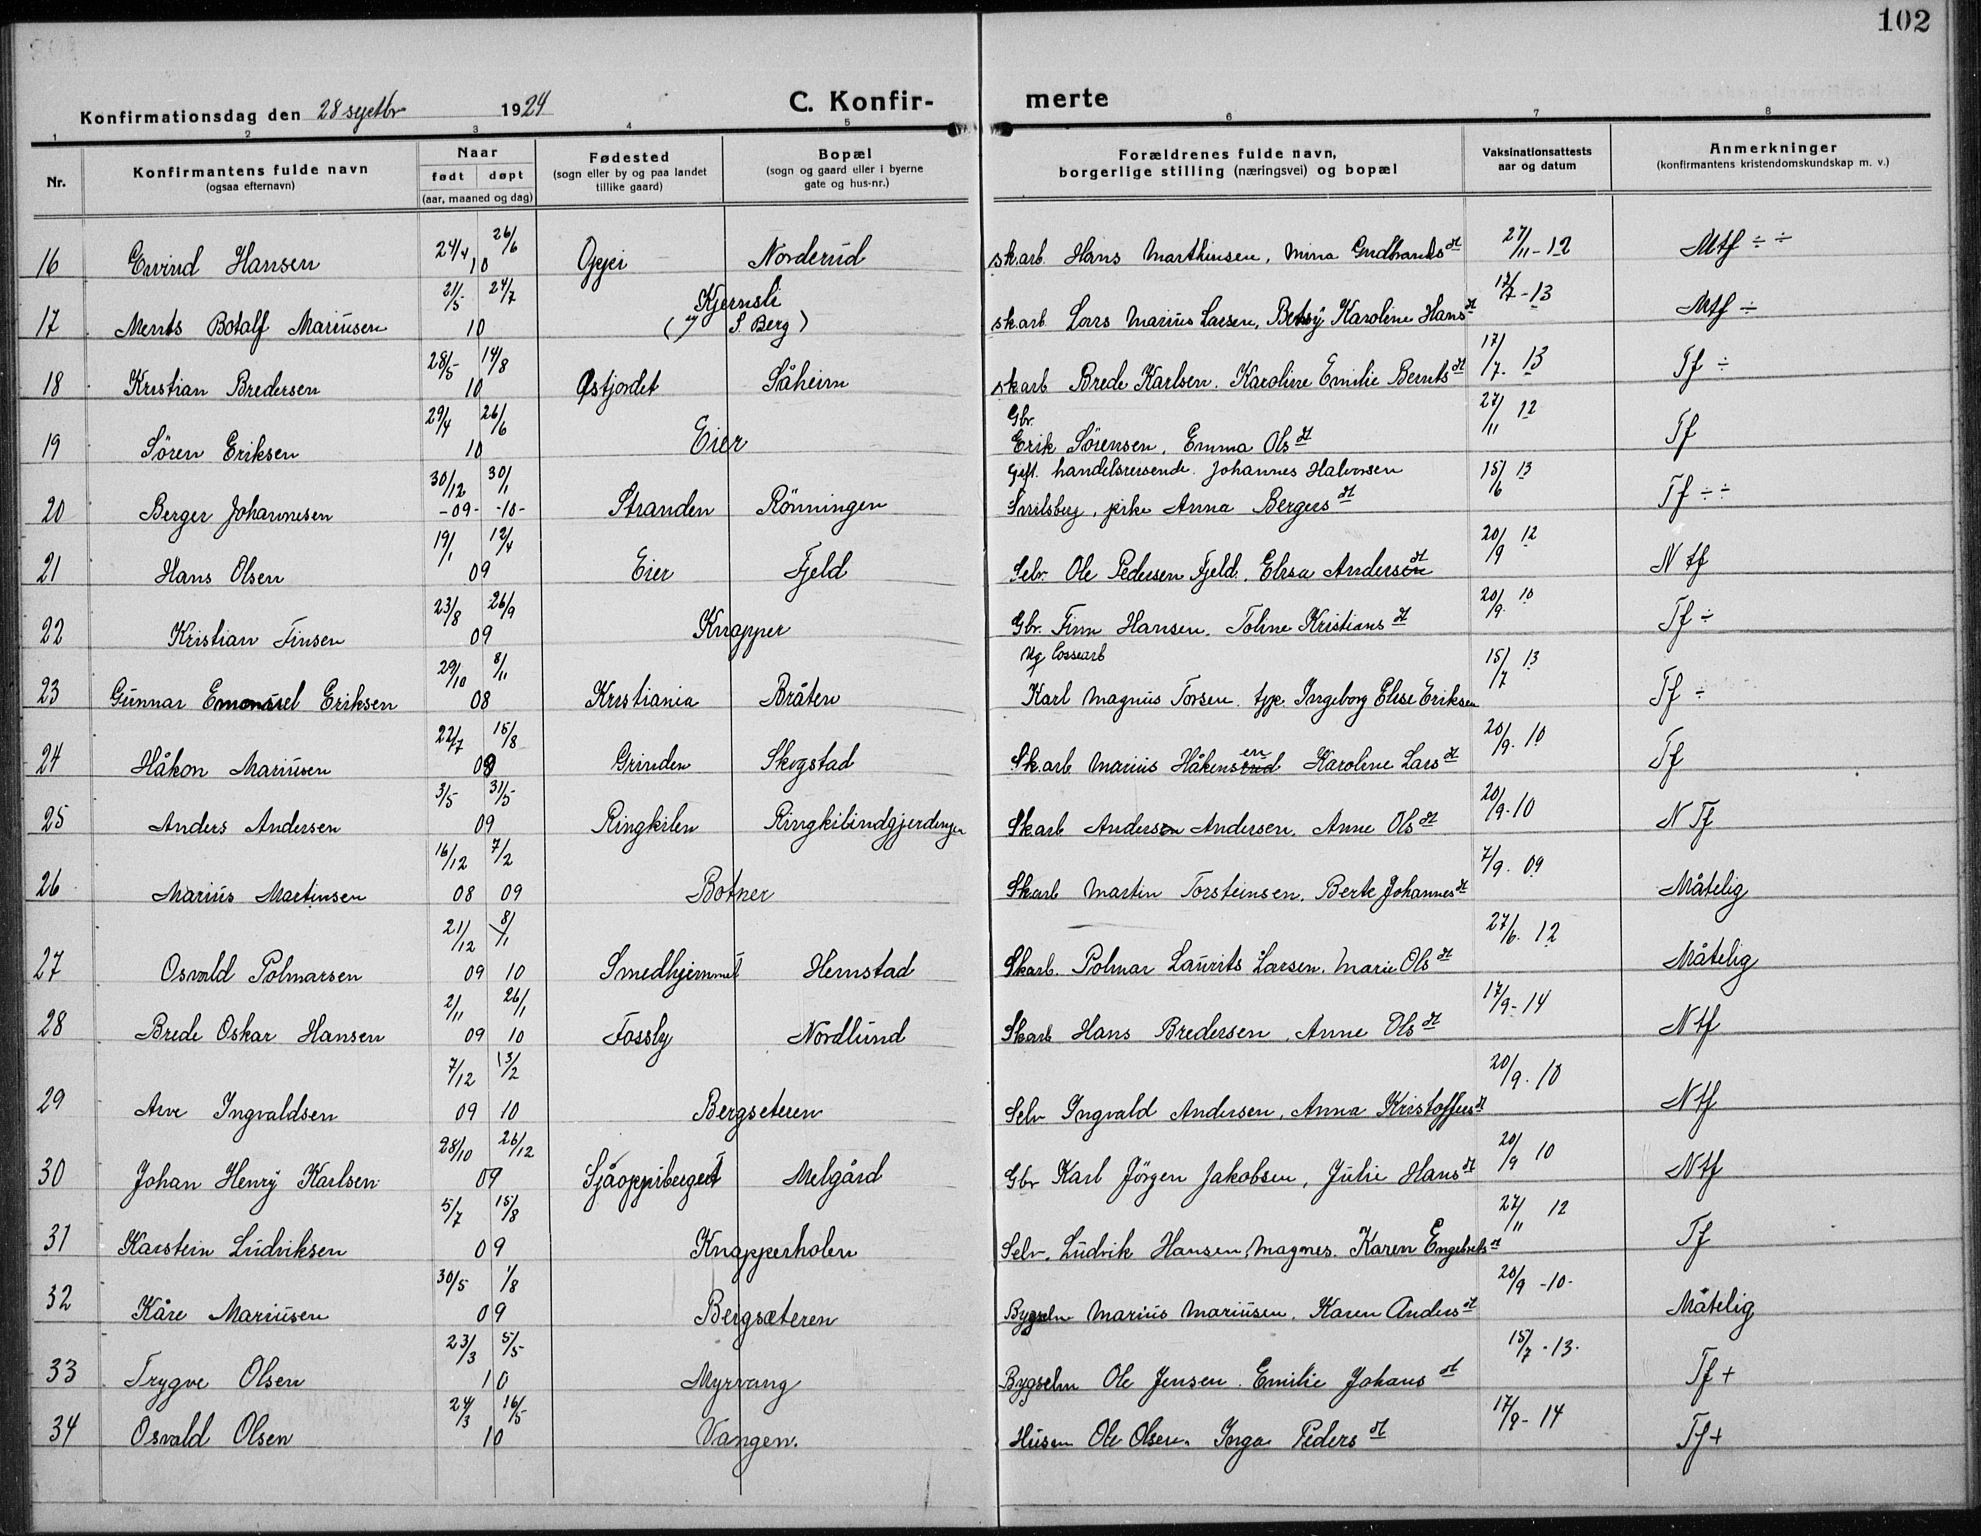 102
Konfirmationsdag den 28 septbr 1924
C. Konfir- merte
1 2 3 4 5 6 7 8
Nr.
Konfirmantens fulde navn
(ogsaa efternavn)
Naar
født døpt
(aar, maaned og dag)
Fødested
(sogn eller by og paa landet
tillike gaard)
Bopæl
(sogn og gaard eller i byerne
gate og hus-nr.)
Forældrenes fulde navn,
borgerlige stilling (næringsvei) og bopæl
Vaksinationsattests
aar og datum
Anmerkninger
(konfirmantens kristendomskundskap m. v.)
16 Eivind Hansen 24/4 26/6 10 Norderud skarb. Hans Marthinsen, Mina Gudbrands dt 27/11-12 Mtf ÷ ÷
17 Ments Botalf Mariusen 21/5 24/7 10 Kjernsli ( S. Berg) skarb. Lars Marius Larsen, Betsy Karoline Hans dt 17/7-13 Mtf ÷
18 Kristian Bredersen 28/5 14/8 10 Østjordet Såheim skarb Brede Karlsen. Karoline Emilie Bernts dt 17/7. 13 Tf ÷
19 Søren Eriksen 29/4 26/6 10 Eier Gbr. Erik Sørensen, Emma Ols dt 27/11 12 Tf
20 Berger Johannesen 30/12 30/1 -09- -10- Stranden Rönningen Gift. handelsreisende. Johannes Halvorsen
pike Anna Bergers dt 15/6 13 Tf ÷ ÷
21 Hans Olsen 19/1 12/4 09 Eier Fjeld Selv. Ole Pedersen Fjeld. Elisa Anders dt 20/9 12 Ntf
22 Kristian Finsen 23/8 26/9 09 Knapper Gbr. Finn Hansen. Toline Kristians dt 20/9. 10 Tf ÷
23 Gunnar Emanuel Eriksen 29/10 8/11 08 Kristiania Bråten Ug lossearb
Karl Magnus Torsen. tjp. Ingeborg Elise Eriksen 15/7 13 Tf ÷
24 Håkon Mariusen 22/7 15/8 09 Grinden Skogstad Skarb. Marius Håkensen Karoline Lars dt 20/9. 10 Tf
25 Anders Andersen 3/5 31/5 09 Ringkilen Ringkilindgjerdingen Skarb Anders Andersen. Anne Ols dt 20/9-10 N Tf
26 Marius Martinsen 16/12 7/2 08 09 Botner Skarb Martin Torsteinsen. Berte Johannes dt 7/9. 09 Måtelig
27 Osvald Polmarsen 21/12 8/1 09 10 Smedhjemmet Hemstad Skarb. Polmar Laurits Larsen. Marie Ols dt 27/6. 12 Måtelig
28 Brede Oskar Hansen 2/11 26/1 09 10 Fossly Nordlund Skarb Hans Bredersen, Anne Ols dt 17/9-14 Ntf
29 Arve Ingvaldsen 7/12 13/2 09 10 Bergseteren Selv Ingvald Andersen, Anna Kristoffers dt 20/9. 10 Ntf
30 Johan Henry Karlsen 28/10 26/12 09 Sjåoppiberget Melgård Gbr Karl Jörgen Jakobsen, Julie Hans dt 20/9 10 Ntf
31 Karstein Ludviksen 5/7 15/8 09 Knapperholen Selv. Ludvik Hansen, Magnes. Karen Engebrets dt 27/11 12 Tf
32 Kåre Mariusen 30/5 1/8 09 Bergsæteren Bygselm Marius Mariusen. Karen Anders dt 20/9 -10- Måtelig
33 Trygve Olsen 23/3 5/5 10 Myrvang Bygselm Ole Jensen. Emilie Johans dt 15/7-13. Tf +
34 Osvald Olsen 24/3 16/5 10 Vangen. Husm Ole Olsen. Inga Peders dt 17/9-14 Tf +